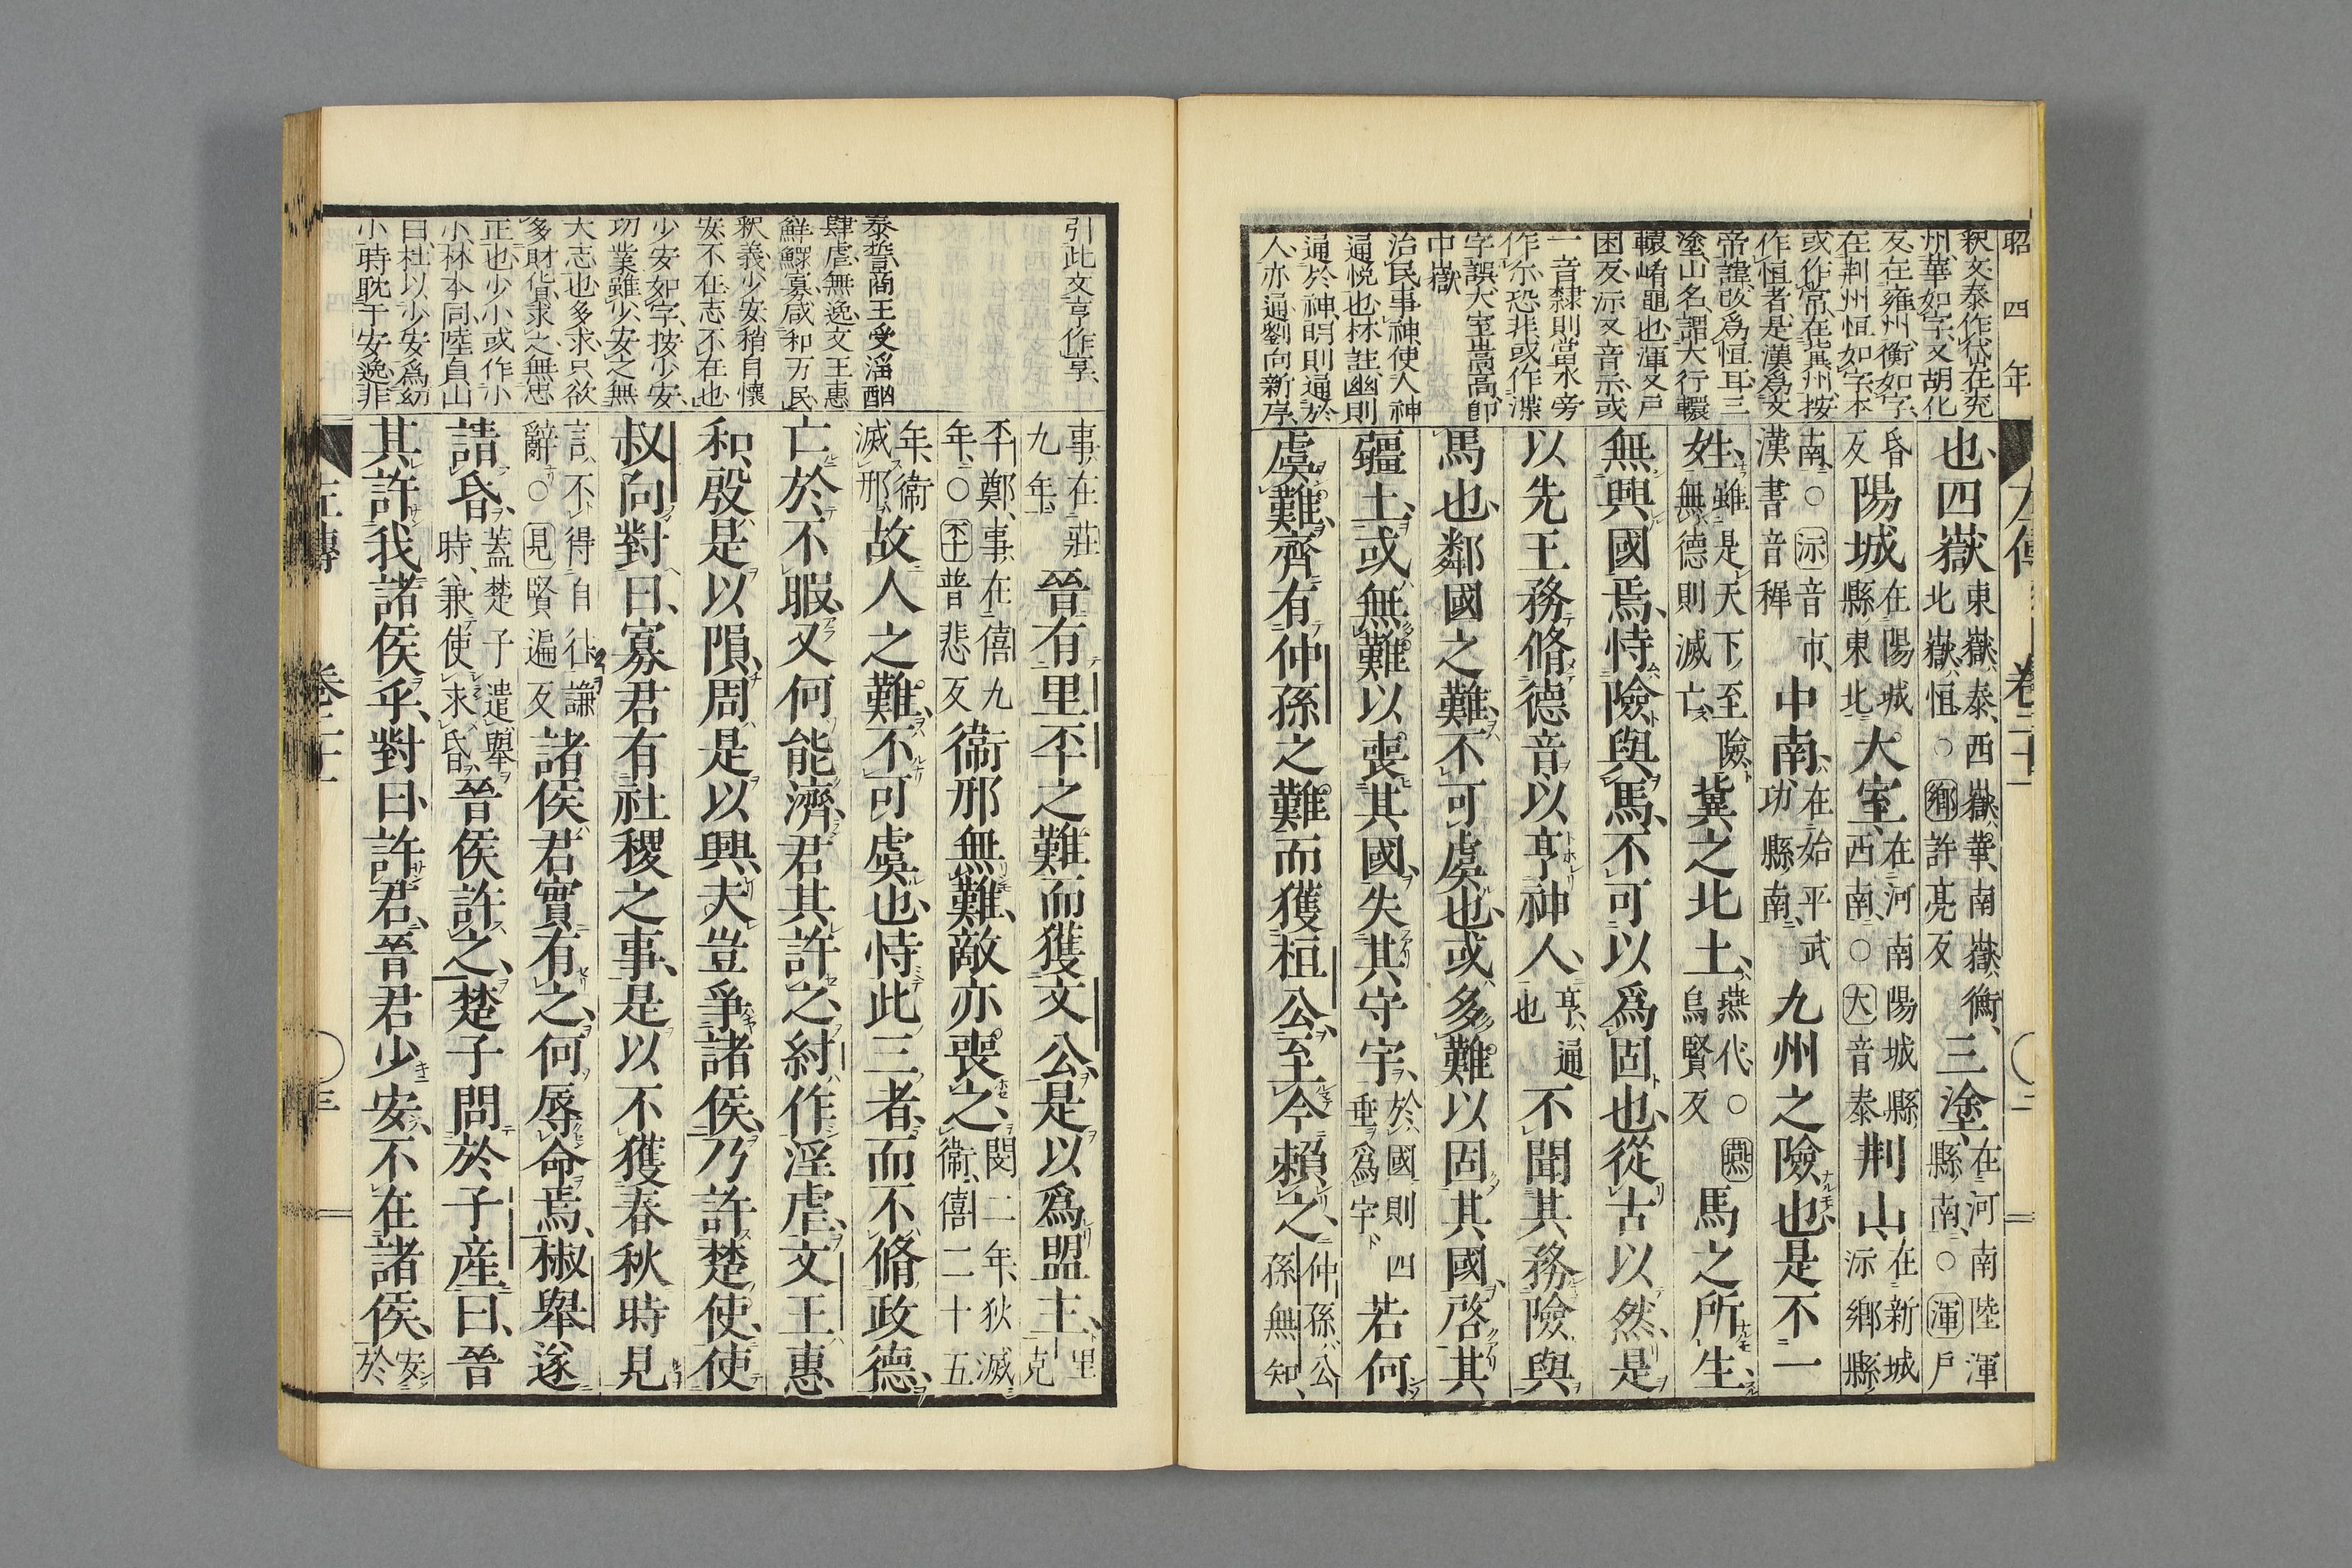 昭四年
左傳 卷二十一 二
釈文泰作岱在兖
州華如字又胡化
反在雍州衡如字
在荆州恒如字本
或作常在冀州按
作恒者是漢爲文
帝諱改爲恒耳三
塗山名謂大行轘
轅崤黽也渾又戶
困反沶又音示或
一音隸則當水旁
作尓恐非或作
字誤大室嵩高卽
中嶽
治民事神使人神
通悅也林註幽則
通於神明則通於
人亦通劉向新序
也、四嶽東嶽泰、西嶽華、南嶽衡、北嶽恒、○嶽許亮反三塗、在河南陸渾縣南、○渾戶
昏反陽城在陽城縣東北大室、在河南陽城縣西南、○大音泰荆山、在新城沶鄉縣
南、○沶音市、漢書音稺中南、在始平武功縣南、九州之險也是不一
姓、雖是天下至險、無德則滅亡冀之北土、燕代○燕烏賢反馬之所生、
無興國焉、恃險與馬、不可以爲固也、從古以然、是
以先王務脩德音以亨神人、亨、通也不聞其務險與
馬也、鄰國之難、不可虞也、或多難以固其國、啓其
疆土、或無難以喪其國、失其守宇、於國則四垂爲宇若何
虞難、齊有仲孫之難而獲桓公、至今賴之、仲孫、公孫無知、
引此文亨作享、
泰誓商王受淫酗
肆虐無逸文王惠
鮮鰥寡咸和万民
釈義少安稍自懷
安不在志不在也
少安如字按少安
功業雖少安之無
大志也多求只欲
多財貨求之無忠
正也少小或作小
小林本同陸貞山
曰杜以少安爲幼
小時耽于安逸非
事、在莊九年晉有里丕之難而獲文公、是以爲盟主、里克
丕鄭、事、在僖九年、○丕普悲反衞邢無難、敵亦喪之、閔二年狄滅衞、僖二十五
年、衞滅邢、故人之難、不可虞也、恃此三者、而不脩政德、
亡於不暇、又何能濟、君其許之、紂作淫虐、文王惠
和、殷是以隕、周是以興、夫豈爭諸侯、乃許楚使、使
叔向對曰、寡君有社稷之事、是以不獲春秋時見
言、不得自往謙辭○見賢遍反諸侯君實有之、何辱命焉、椒舉遂
請昏、蓋楚子遣舉時、兼使求昏、晉侯許之、楚子問於子産曰、晉
其許我諸侯乎、對曰、許君、晉君少安、不在諸侯、安於
左傳 卷二十一 三